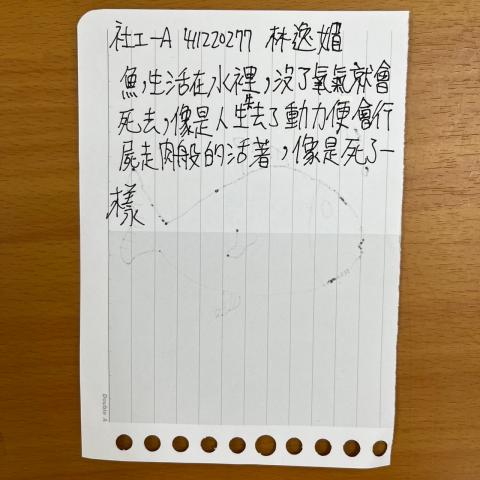 社工一A 41220277 林逸媚
魚,生活在水裡,沒了氧氣就會
死去,像是人生失去了動力便會行
屍走肉般的活著,像是死了一
樣
Double A